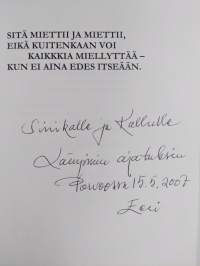 SITÄ MIETTII JA MIETTII,
EIKÄ KUITENKAAN VOI
KAIKKKIA MIELLYTTÄÄ –
KUN EI AINA EDES ITSEÄÄN.
Sirikalle ja Kallulle
Lämpimin ajatuksin
Porvoossa 15.5.2007
Eeri